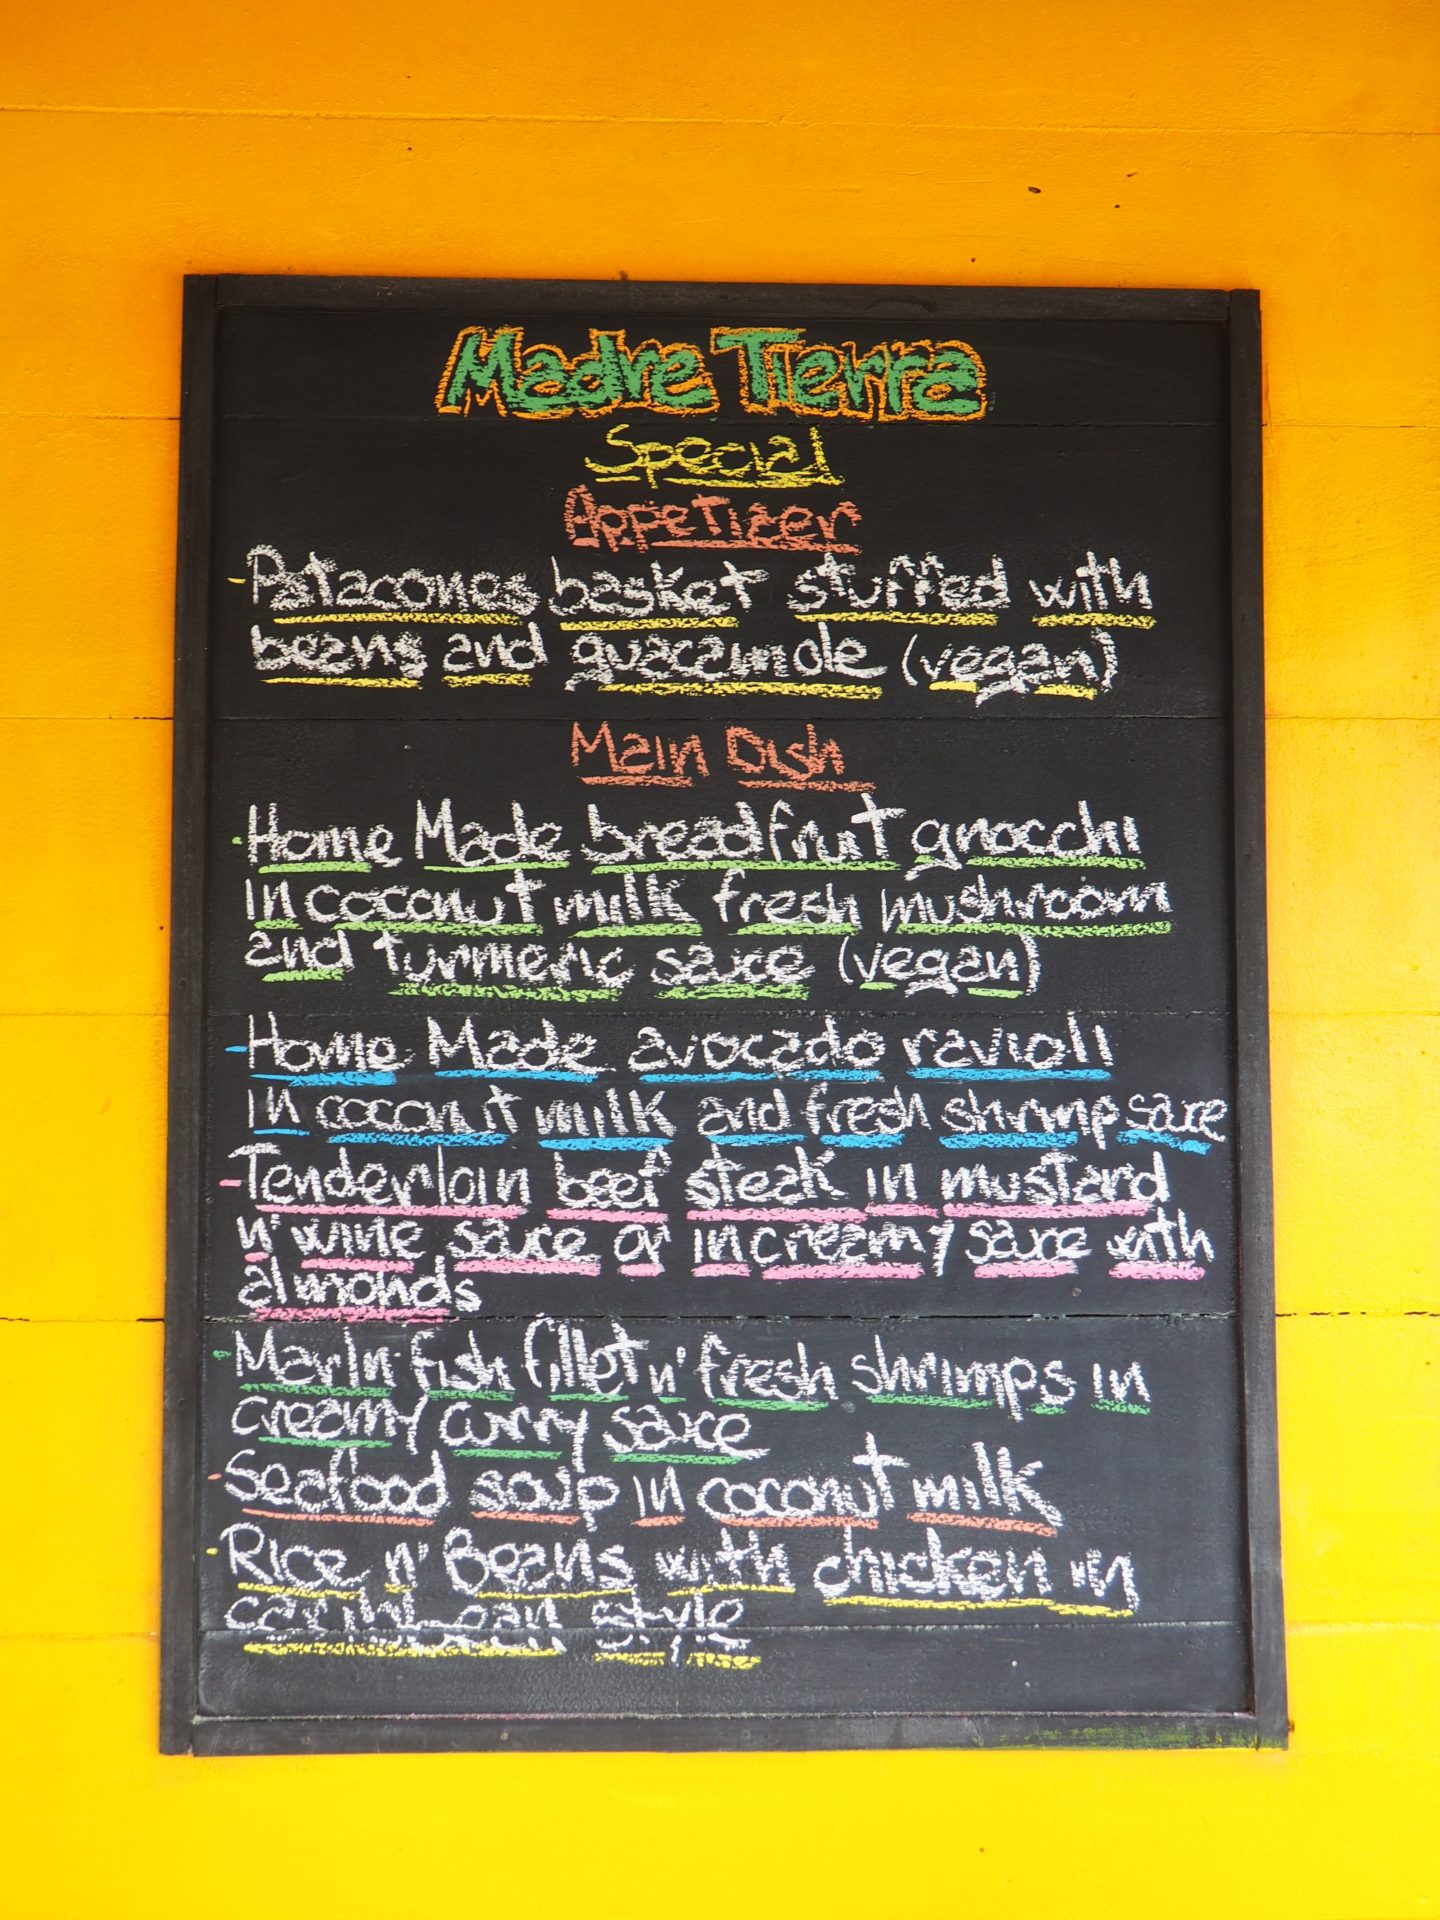 Madre Tierra
Special
Appetizer
-Patacones basket stuffed with
beans and guacamole (vegan)
Main Dish
-Home Made breadfruit gnocchi
in coconut milk fresh mushroom
and turmeric sauce (vegan)
-Home Made avocado ravioli
in coconut milk and fresh shrimp sauce
-Tenderloin beef steak in mustard
n' wine sauce or in creamy sauce with
almonds
-Marlin fish fillet n' fresh shrimps in
creamy curry sauce
-Seafood soup in coconut milk
-Rice n' Beans with chicken in
caribbean style